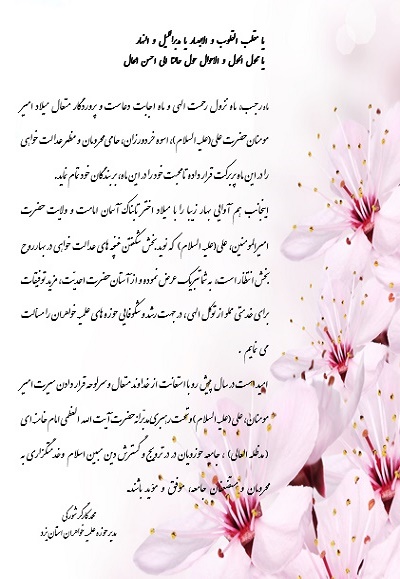 یا مقلب القلوب و الابصار یا مدبر اللیل و النهار
یا محول الحول و الاحوال حول حالنا الی احسن الحال
ماه رجب، ماه نزول رحمت الهی و ماه اجابت دعاست و پروردگار متعال میلاد امیر
مومنان حضرت علی (علیه السلام)، اسوه خردورزان، حامی محرومان و مظهر عدالت خواهی
را در این ماه پربرکت قرار داده تا محبت خود را در این ماه، بر بندگان خود تمام نماید.
اینجانب هم آوایی بهار زیبا را با میلاد اختر تابناک آسمان امامت و ولایت حضرت
امیرالمومنین، علی (علیه السلام) که نویدبخش شکفتن غنچه های عدالت خواهی در بهار روح
بخش انتظار است، به شما تبریک عرض نموده و از آستان حضرت احدیت، مزید توفیقات
برای خدمتی مملو از توکل الهی، در جهت رشد و شکوفایی حوزه های علمیه خواهران را مسالت
می نمایم .
امید است در سال پیش رو با استعانت از خداوند متعال و سرلوحه قرار دادن سیرت امیر
مومنان، علی (علیه السلام) و تحت رهبری مدبرانه حضرت آیت الله العظمی امام خامنه ای
(مدظله العالی) ، جامعه حوزویان در در ترویج و گسترش دین مبین اسلام و خدمتگزاری به
محرومان و مستضعفان جامعه، موفق و موید باشند.
محمد کارگر شورکی
مدیر حوزه علمیه خواهران استان یزد